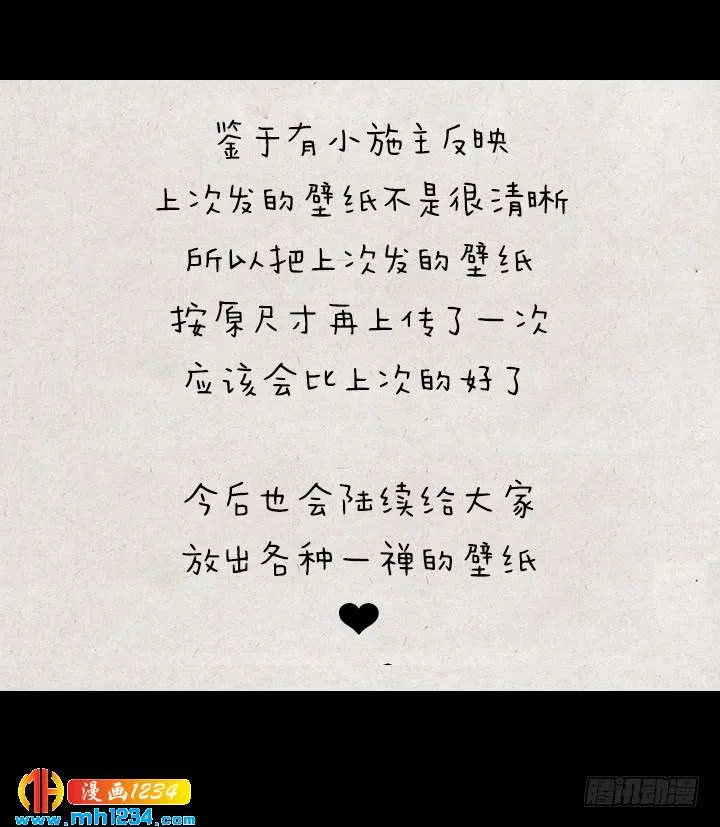 鉴于有小施主反映
上次发的壁纸不是很清晰
所以把上次发的壁纸
按原尺寸再上传了一次
应该会比上次的好了
今后也会陆续给大家
放出各种一禅的壁纸
MH 漫画1234
www.mh1234.com
腾讯动漫